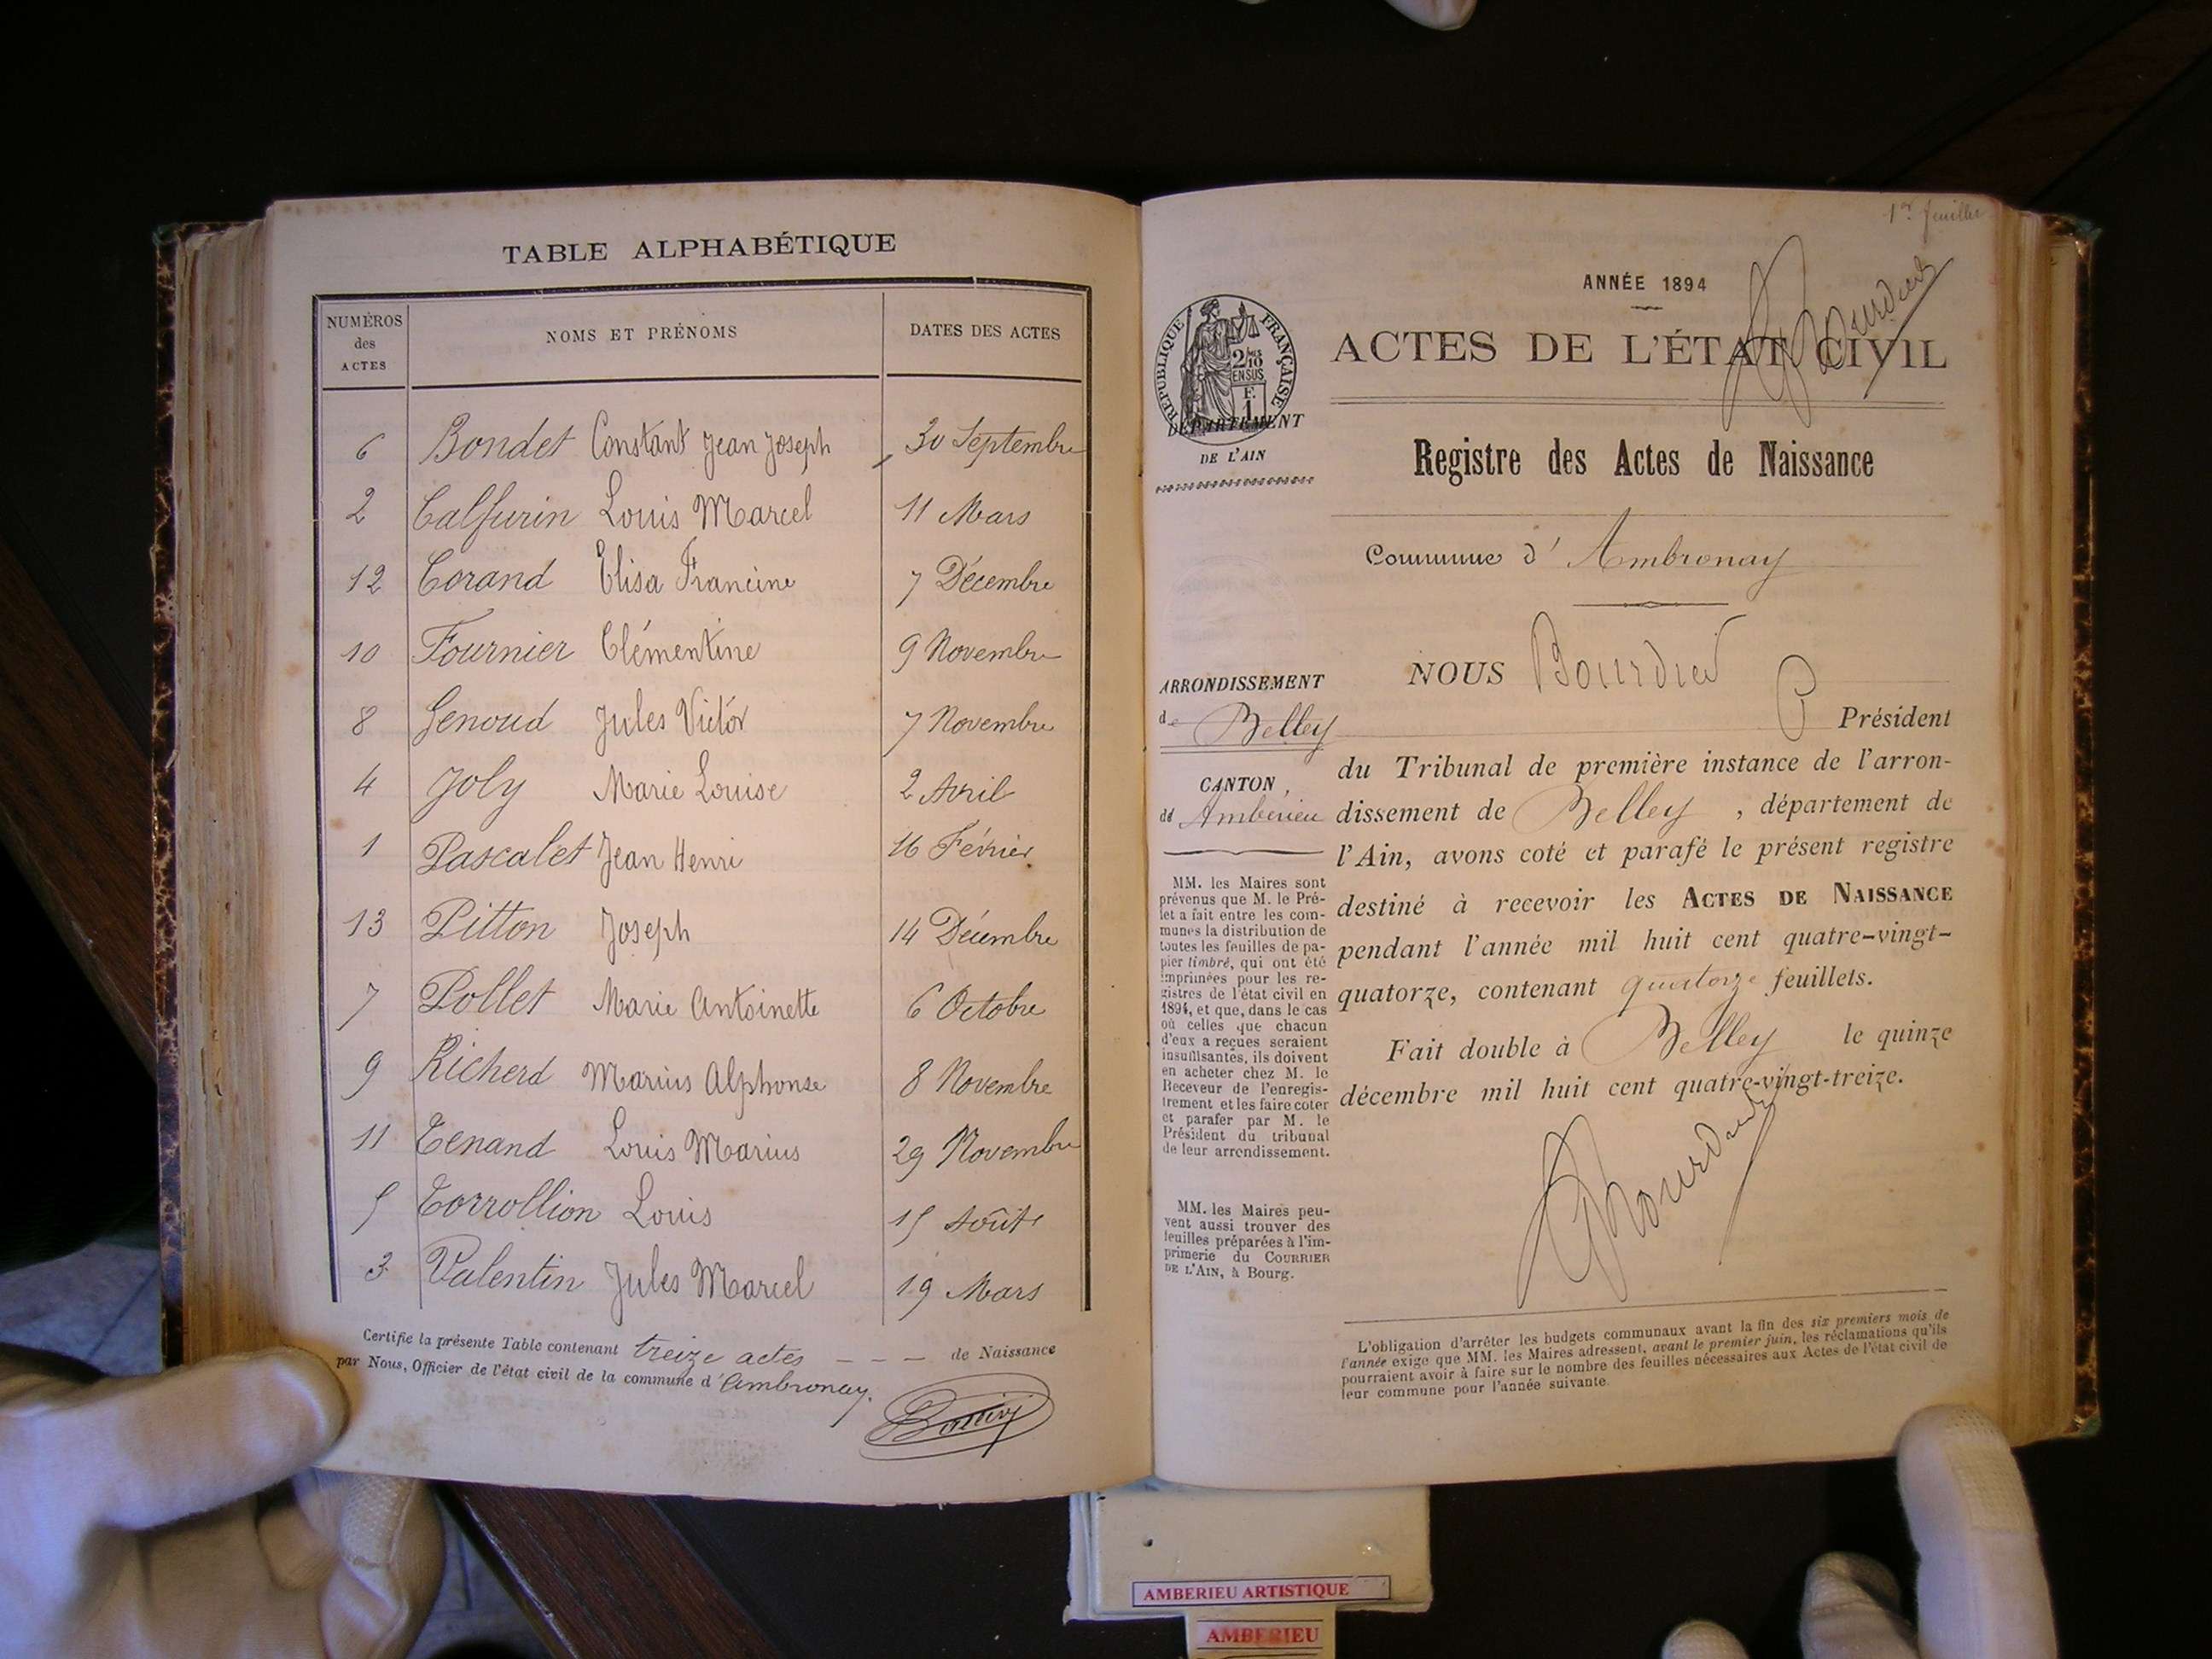 TABLE ALPHABÉTIQUE
NUMÉROS
des
ACTES
NOMS ET PRÉNOMS
DATES DES ACTES
6 Bondet Constant Jean Joseph 30 Septembre
2 Calfurin Louis Marcel 11 Mars
12 Corand Elisa Francine 7 Décembre
10 Fournier Clémentine 9 Novembre
8 Genoud Jules Victor 7 Novembre
4 Joly Marie Louise 2 Avril
1 Pascalet Jean Henri 16 Février
13 Pitton Joseph 14 Décembre
7 Pollet Marie Antoinette 6 Octobre
9 Richerd Marius Alphonse 8 Novembre
11 Tenand Louis Marius 29 Novembre
5 Torrollion Louis 15 Août
3 Valentin Jules Marcel 19 Mars
Certifie la présente Table contenant treize actes – – – de Naissance
par Nous, Officier de l'état civil de la commune d'Ambronay.
ANNÉE 1894
ACTES DE L'ÉTAT CIVIL
RÉPUBLIQUE FRANÇAISE
2/10
EN SUS
F.
1
DÉPARTEMENT
DE L'AIN
Registre des Actes de Naissance
Commune d'Ambronay
ARRONDISSEMENT
de Belley
CANTON
d' Ambérieu
MM. les Maires sont
prévenus que M. le Pré-
fet a fait entre les com-
munes la distribution de
toutes les feuilles de pa-
pier timbré, qui ont été
imprimées pour les re-
gistres de l'état civil en
1894, et que, dans le cas
où celles que chacun
d'eux a reçues seraient
insuffisantes, ils doivent
en acheter chez M. le
Receveur de l'enregis-
trement et les faire coter
et parafer par M. le
Président du tribunal
de leur arrondissement.
MM. les Maires peu-
vent aussi trouver des
feuilles préparées à l'im-
primerie du COURRIER
DE L'AIN, à Bourg.
NOUS Bourdier
Président
du Tribunal de première instance de l'arron-
dissement de Belley, département de
l'Ain, avons coté et parafé le présent registre
destiné à recevoir les ACTES DE NAISSANCE
pendant l'année mil huit cent quatre-vingt-
quatorze, contenant quatorze feuillets.
Fait double à Belley le quinze
décembre mil huit cent quatre-vingt-treize.
L'obligation d'arrêter les budgets communaux avant la fin des six premiers mois de
l'année exige que MM. les Maires adressent, avant le premier juin, les réclamations qu'ils
pourraient avoir à faire sur le nombre des feuilles nécessaires aux Actes de l'état civil de
leur commune pour l'année suivante.
AMBERIEU ARTISTIQUE
AMBERIEU